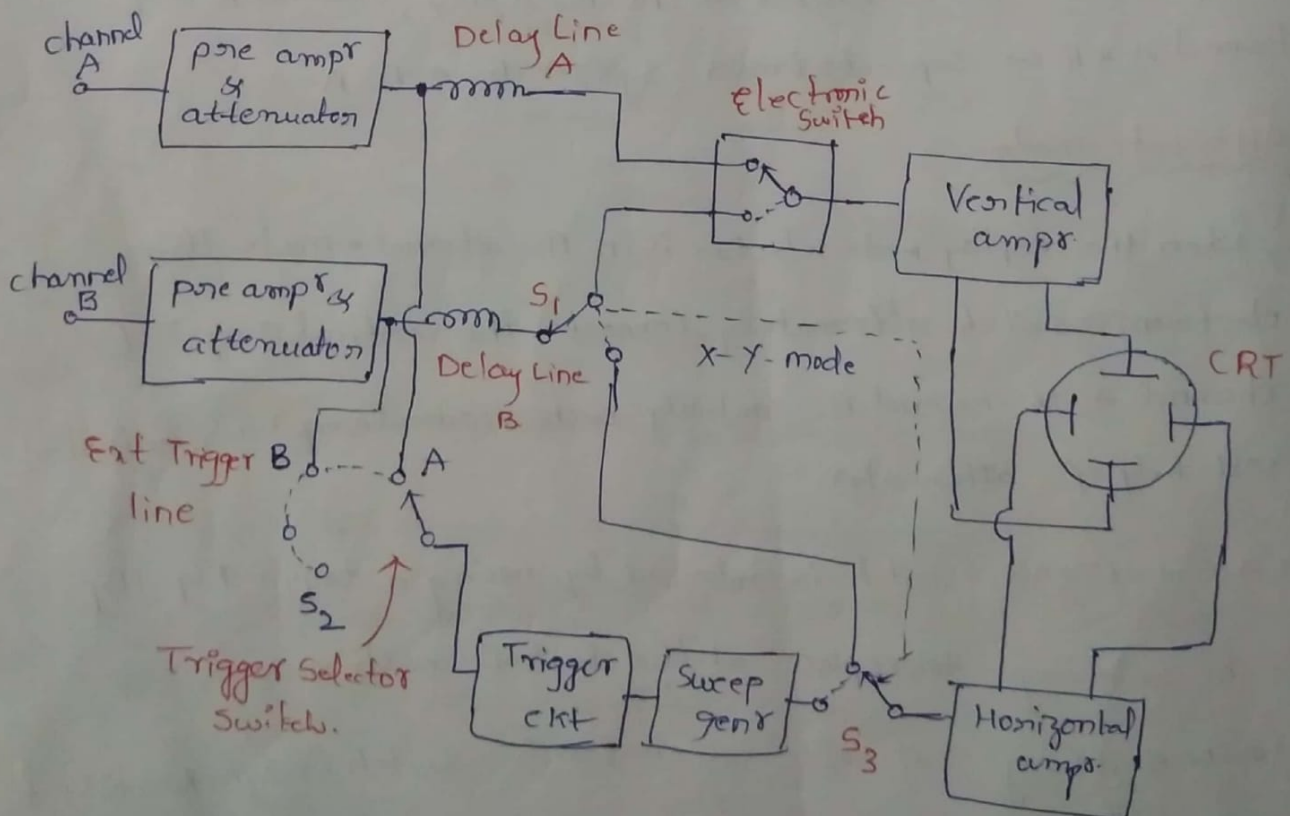 channel
A
pre ampr
&
attenuator
Delay Line
A
Electronic
Switch
Vertical
ampr.
channel
B
pre ampr &
attenuator
S1
Delay Line
B
X-Y-mode
CRT
Ext Trigger
line
B
A
S2
Trigger Selector
Switch.
Trigger
ckt
Sweep
genr
S3
Horizontal
ampr.